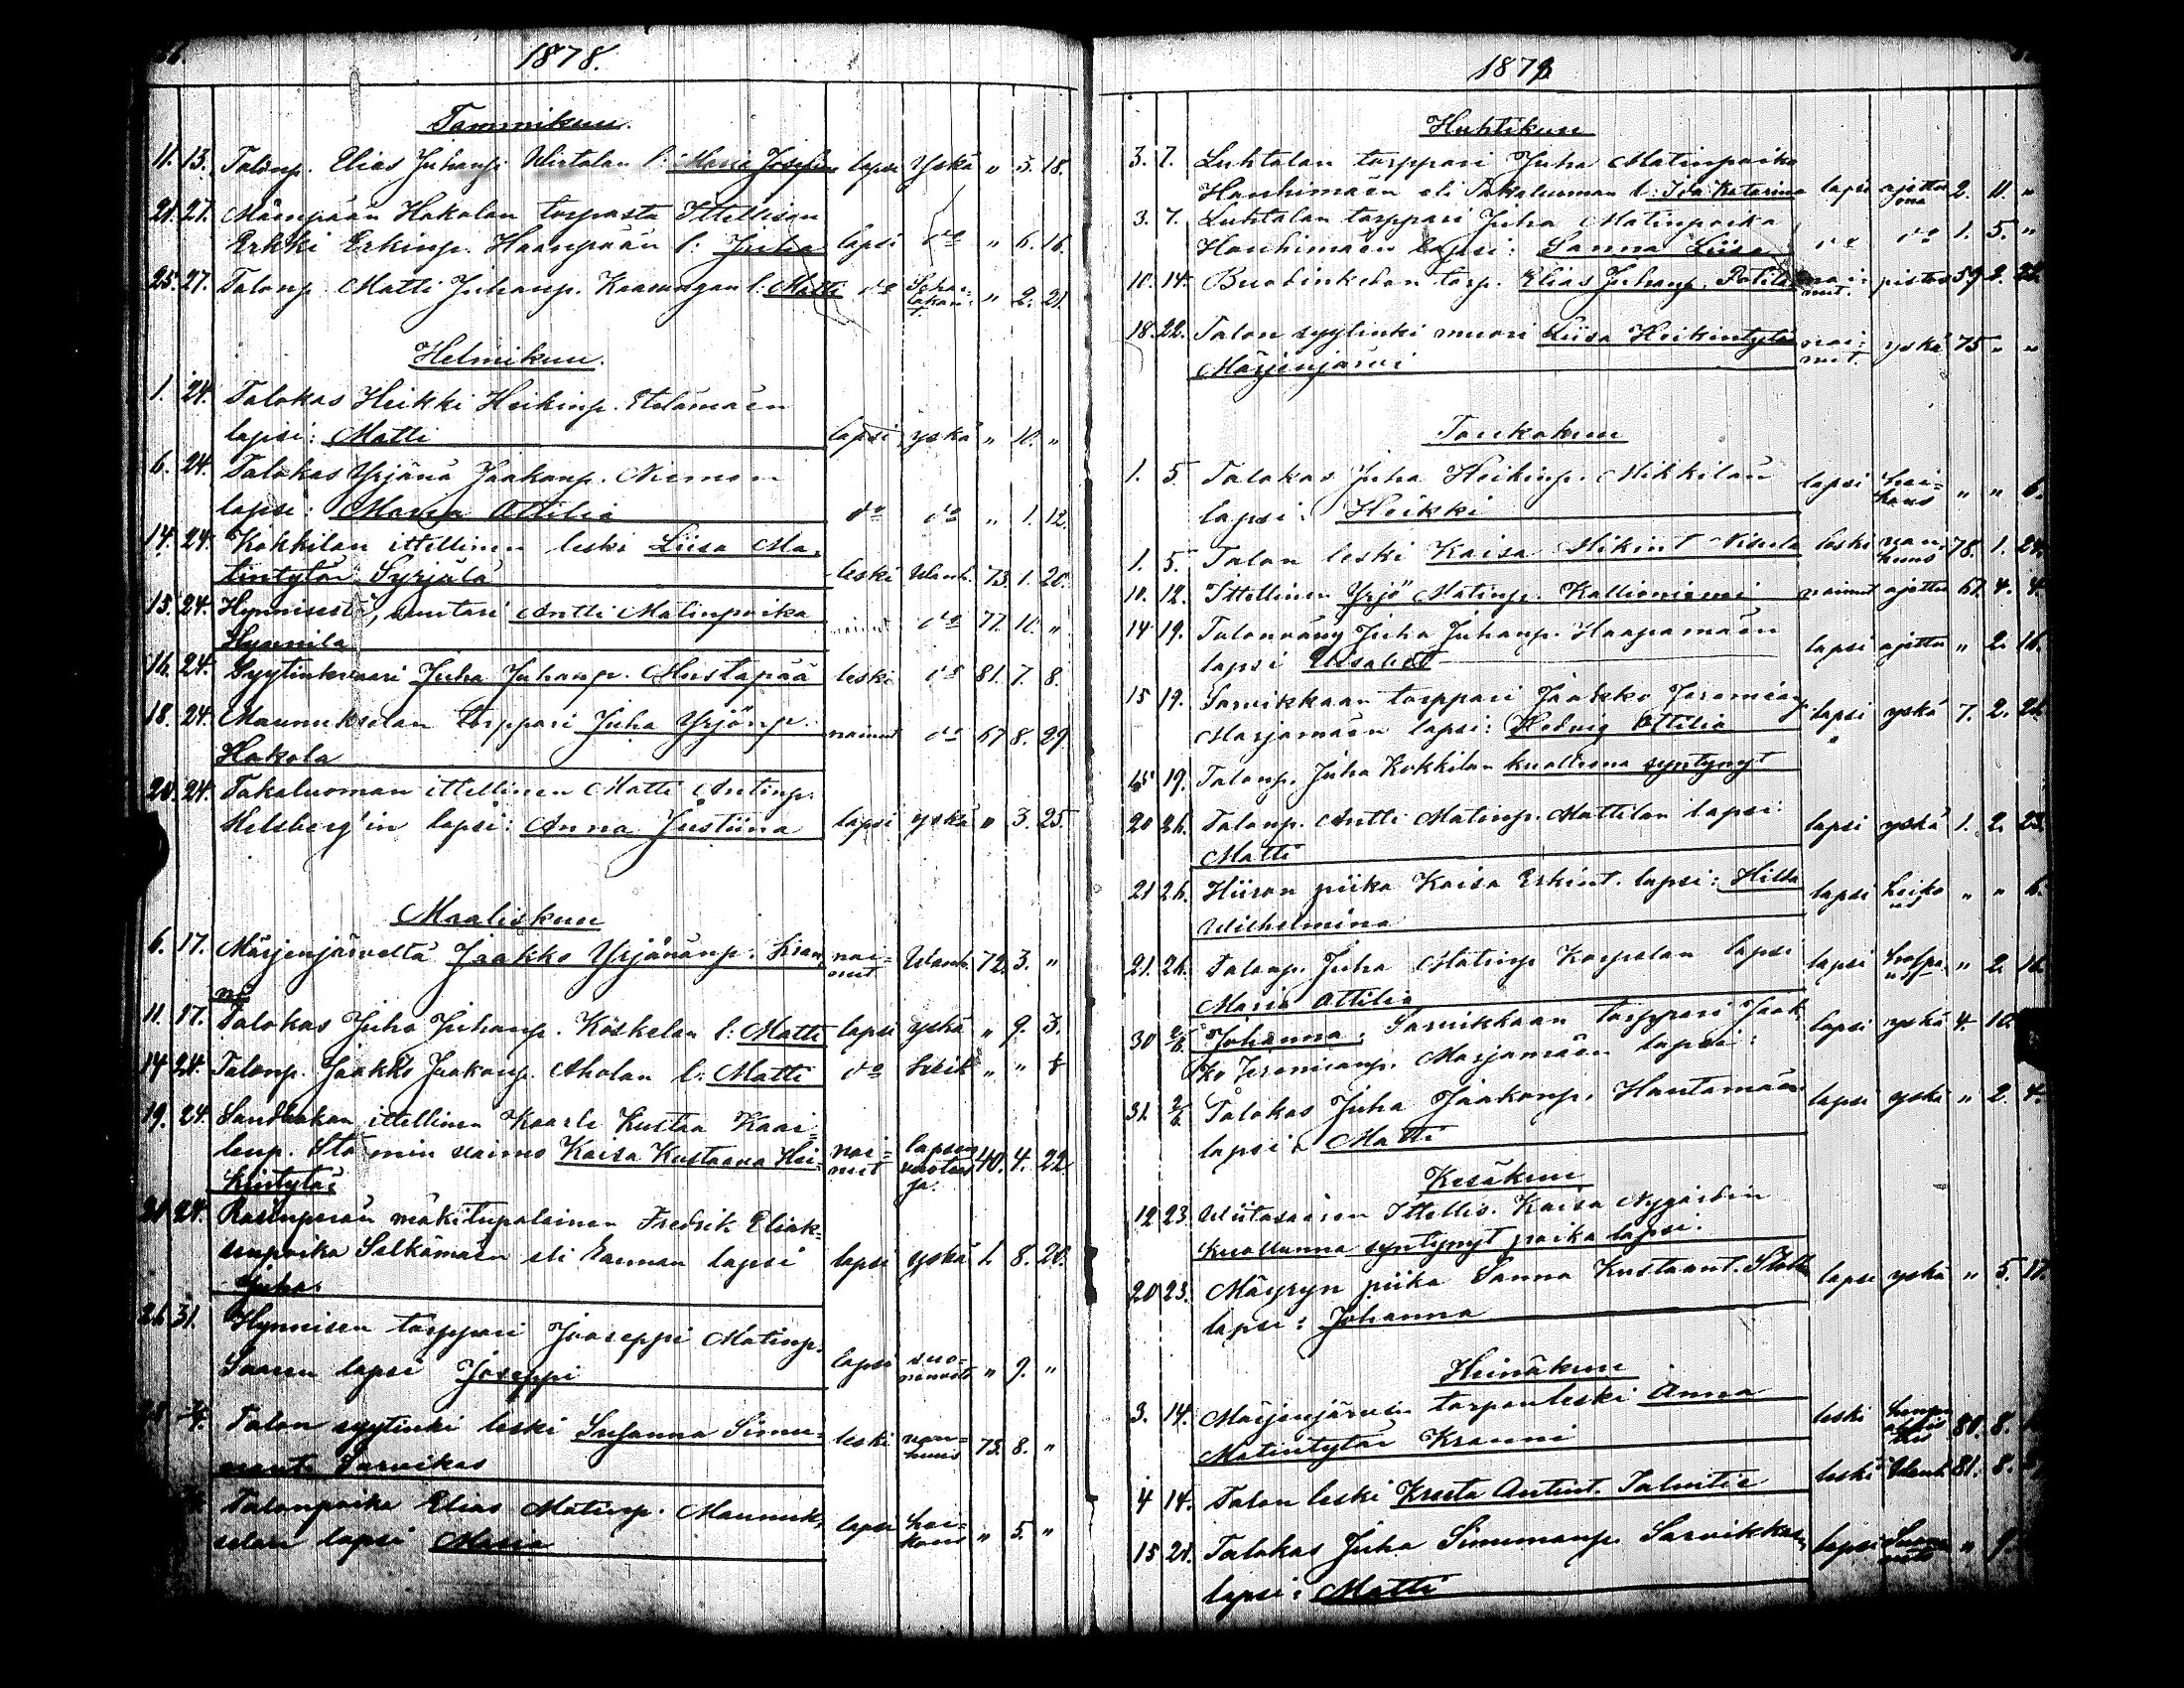 1878.
Tammikuu.
11. 13. Talonp. Elias Juhanp. Wirtalan l: Maria Josefin lapsi Yskä " 3. 18.
21. 27. Mäenpään Hakolan torpasta Ittellisen
Erkki Erkinp. Haanpään l: Juha lapsi do " 6. 16.
25. 27. Talonp. Matti Juhanp. Kaasungan l: Matti do " 2. 21.
Helmikuu.
1. 24. Talokas Heikki Heikinp. Etelämäen
lapsi: Matti lapsi yskä " 10. "
6. 24. Talokas Yrjänä Jaakonp. Niemen
lapsi: Maria Attilia do do " 1. 12.
14. 24. Kokkilan ittellinen leski Liisa Ma-
tintytär Syrjälä leski Wanh. 73. 1. 20.
15. 24. Hynnisestä, suutari Antti Matinpoika
Hynnilä nainut do 77. 10. "
16. 24. Syytinkivaari Juha Juhanp. Mustapää leski do 81. 7. 8.
18. 24. Maunukselan torppari Juha Yrjönp.
Hakola nainut do 67 8. 29.
20. 24. Takaluoman ittellinen Matti Antinp.
Helsberg'in lapsi: Anna Justiina lapsi yskä " 3. 25.
Maaliskuu
6. 17. Märjenjärveltä Jaakko Yrjänänp. Kran-
ni nai=
nut Wanh. 72. 3. "
11. 17. Talokas Juho Juhanp. Koskelan l: Matti lapsi yskä " 9. 3.
14 24. Talonp. Jaakko Jaakonp. Aholan l: Matti do " "
19. 24. Sandbakan ittellinen Kaarle Kustaa Kaar=
lenp. Stå min vaimo Kaisa Kustaava Hei=
kintytär nai=
nut lapsen
vuotees
ja. 40. 4. 22.
21 24. mäkitupalainen Fredrik Eliak=
senpoika Salkämäen eli Lannan lapsi
Juha lapsi yskä 1. 8. 20.
26 31. Hynnisen torppari Jooseppi Matinp.
Saaren lapsi Joseppi lapsi suo=
nenveto " 9. "
Talon syytinki leski Susanna Simu-
nant. Sarvikas leski van=
huus 73. 8. "
Talonpoika Elias Matinp. Maunuk-
selan lapsi Maria lapsi hei=
kous " 5. "
1879
Huhtikuu
3. 7. Luhtalan torppari Juha Matinpoika
Hanhimäen eli Takaluoman l: Ida Katarina lapsi ajettu 2. 11. "
3. 7. Luhtalan torppari Juha Matinpoika
Hanhimäen lapsi: Sanna Liisa do do 1. 5. "
10. 14. torp. Elias Juhanp. nai=
nut. pistos 59. 2.
18. 22. Talon syytinki muori Liisa Heikintytär
Märjenjärvi nai=
nut. yskä 75 " "
Toukokuu
1. 5 Talokas Juha Heikinp. Mikkilän
lapsi: Heikki lapsi hei=
kous " " 6.
1. 5. Talon leski Kaisa leski van-
huus 78. 1. 24.
10. 12. Ittellinen Yrjö Matinp. Kallioniemi nainut ajettu 67. 4. 4.
14 19. Talonväny Juha Juhanp. Haapamäen
lapsi Elisabet lapsi ajettu " 2. 16.
15 19. Sarvikkaan torppari Jaakko Jeremianp.
Marjamäen lapsi: Hedvig Attilia lapsi yskä 7. 2. 26.
15 19. Talonp. Juha Kokkilan kuolleena syntynyt
20 26. Talonp. Antti Matinp. Mattilan lapsi:
Matti lapsi yskä 1. 2. 23.
21 26. Hiiron piika Kaisa Erkint. lapsi: Hilda
Wilhelmina lapsi heiko
us " " 6.
21. 26. Talonp. Juha Matinp Korpelan lapsi
Maria Attilia lapsi " 2. 16.
30 2/6. Johanna; Sarvikkaan torppari Jaak
ko Jeremianp. Marjamäen lapsi: lapsi yskä 4. 10.
31. 2/6 Talokas Juha Jaakonp. Hautamäen
lapsi: Matti lapsi yskä " 2. 4.
Kesäkuu
12 23. Wiitasaaren Ittellis. Kaisa Nygårdin
kuollunna syntynyt poika lapsi.
20 23. Mäyryn piika Sanna Kustaant.
lapsi: Johanna lapsi yskä " 5. 17.
Heinäkuu
3. 14. Märjenjärven torpanleski Anna
Matintytär Kranni leski 80. 8.
4 14. Talon leski Kreeta Antint. Talvitie leski Wanh. 81. 8.
15 21. Talokas Juha Simunanp. Sarvikkan
lapsi: Matti lapsi " 9